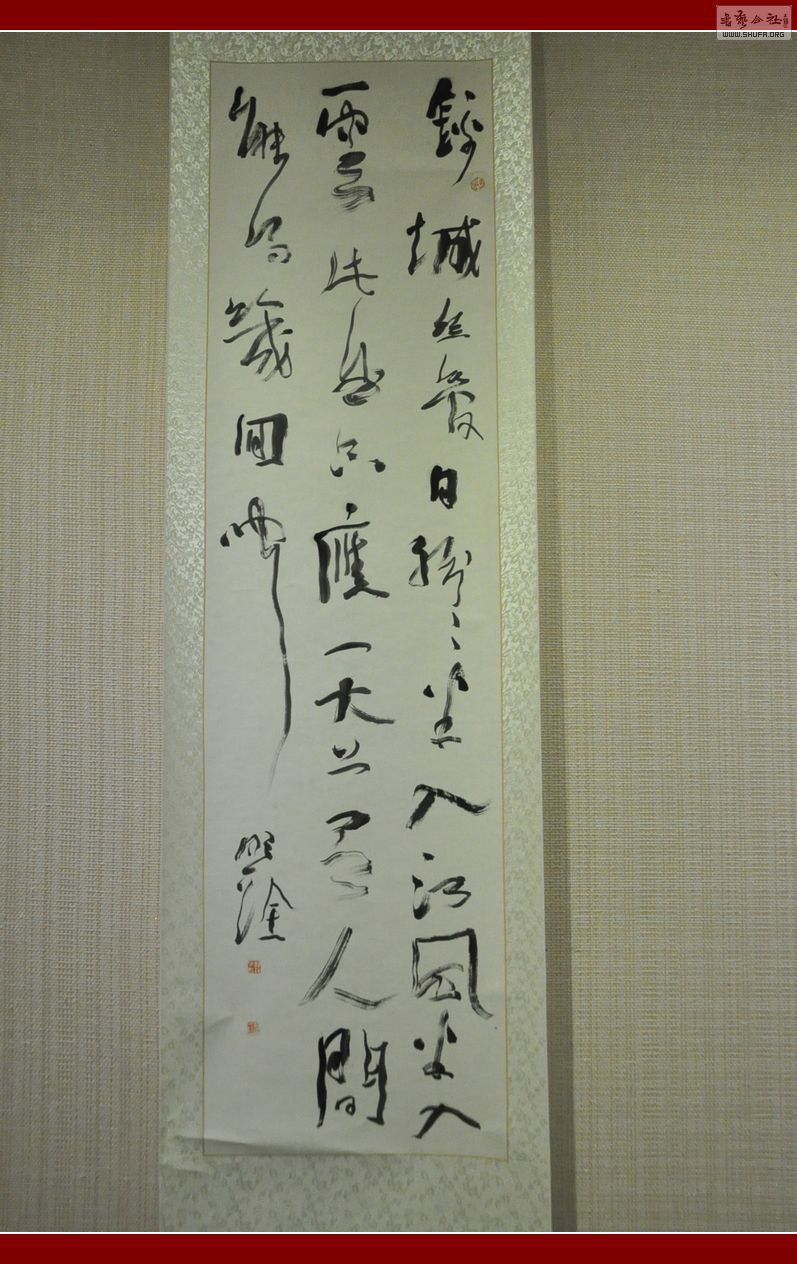 書藝公社
WWW.SHUFA.ORG
錦城丝管日紛〻半入江風半入
雲此曲只應天上有人間
能得幾回聞